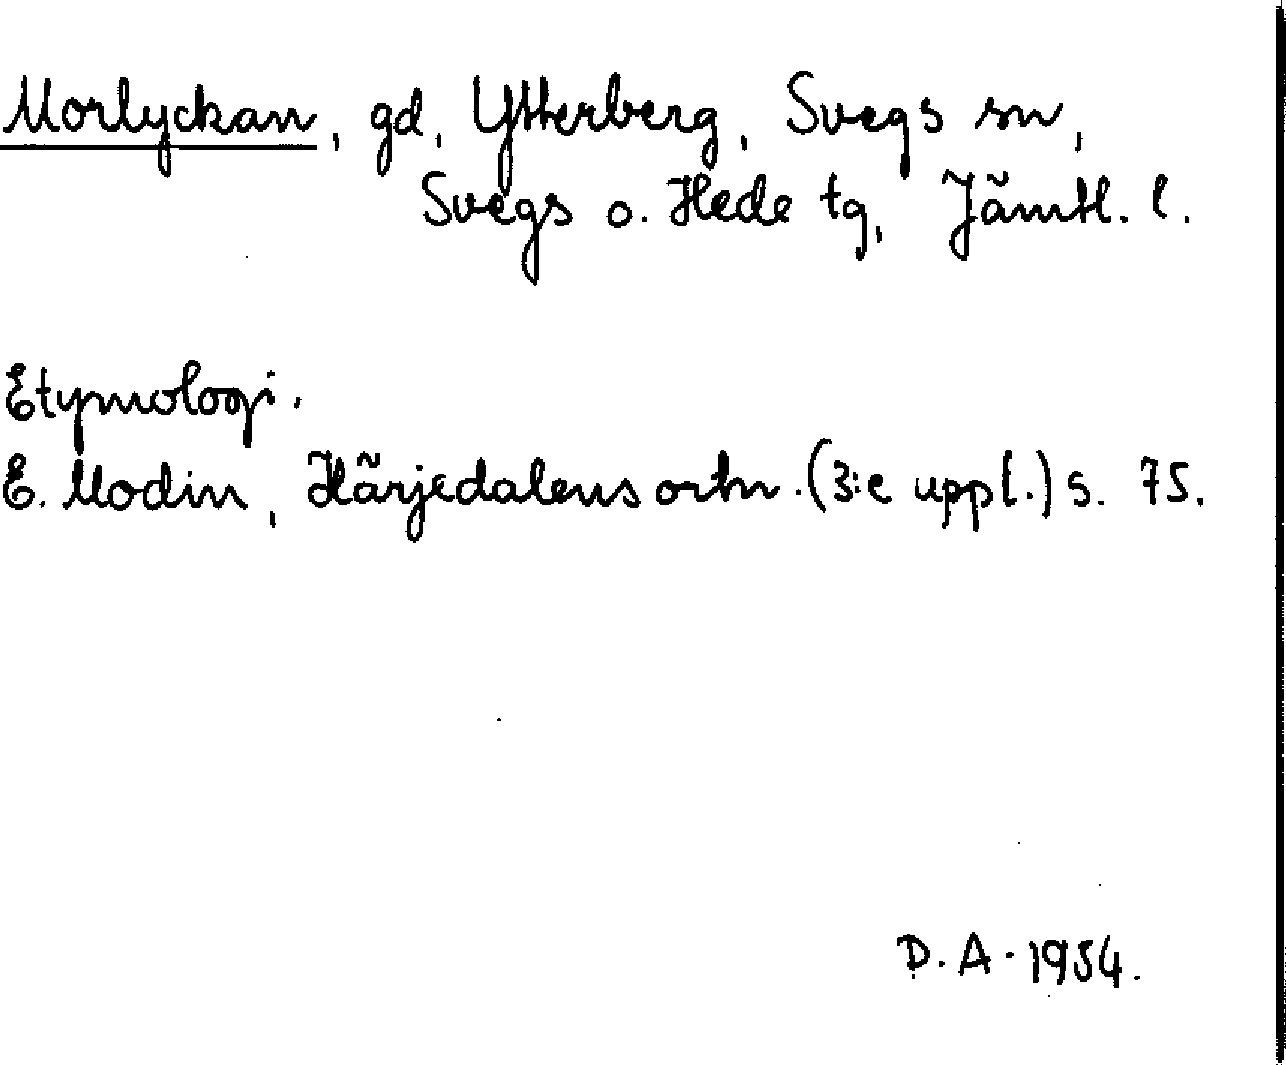 Morlyckan, gd, Ytterberg, Svegs sn,
Svegs o. Hede tg, Jämtl. l.
Etymologi.
E. Modin, Härjedalens ortn. (3:e uppl.) s. 75.
D. A. 1954.